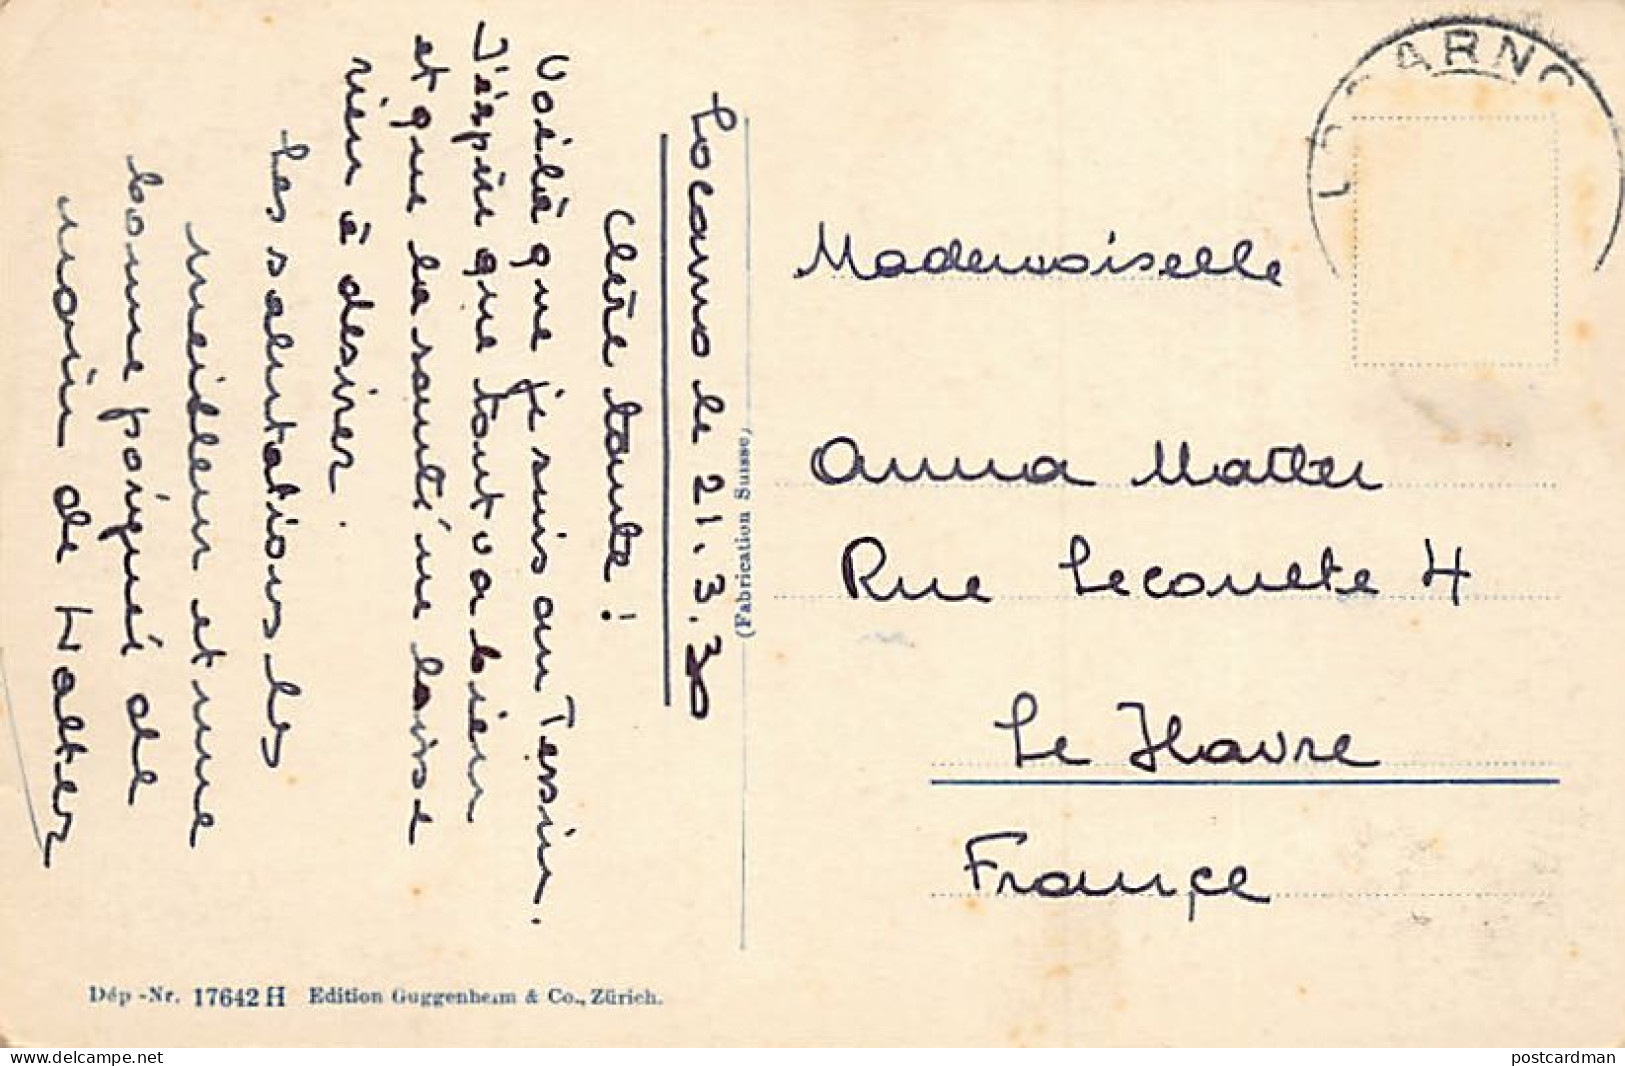 Locarno le 21.3.30
Chère tante!
Voilà que je suis au Tessin.
J'éspère que tout va bien
et que la santé ne laisse
rien à desirer.
Les salutations les
meilleurs et une
bonne poigneé de
main de Walter
(Fabrication Suisse)
LOCARNO
Mademoiselle
Anna Matter
Rue Leconete 4
Le Havre
Françe
Dép-Nr. 17642 H Edition Guggenheim & Co., Zürich.
More items at www.delcampe.net
postcardman